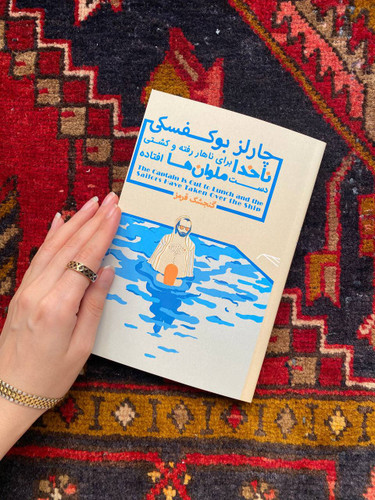 چارلز بوکفسکی
ناخدا برای ناهار رفته و کشتی
دست ملوان‌ها افتاده
The Captain Is Out to Lunch and the
Sailors Have Taken Over the Ship
گنجشک قرمز